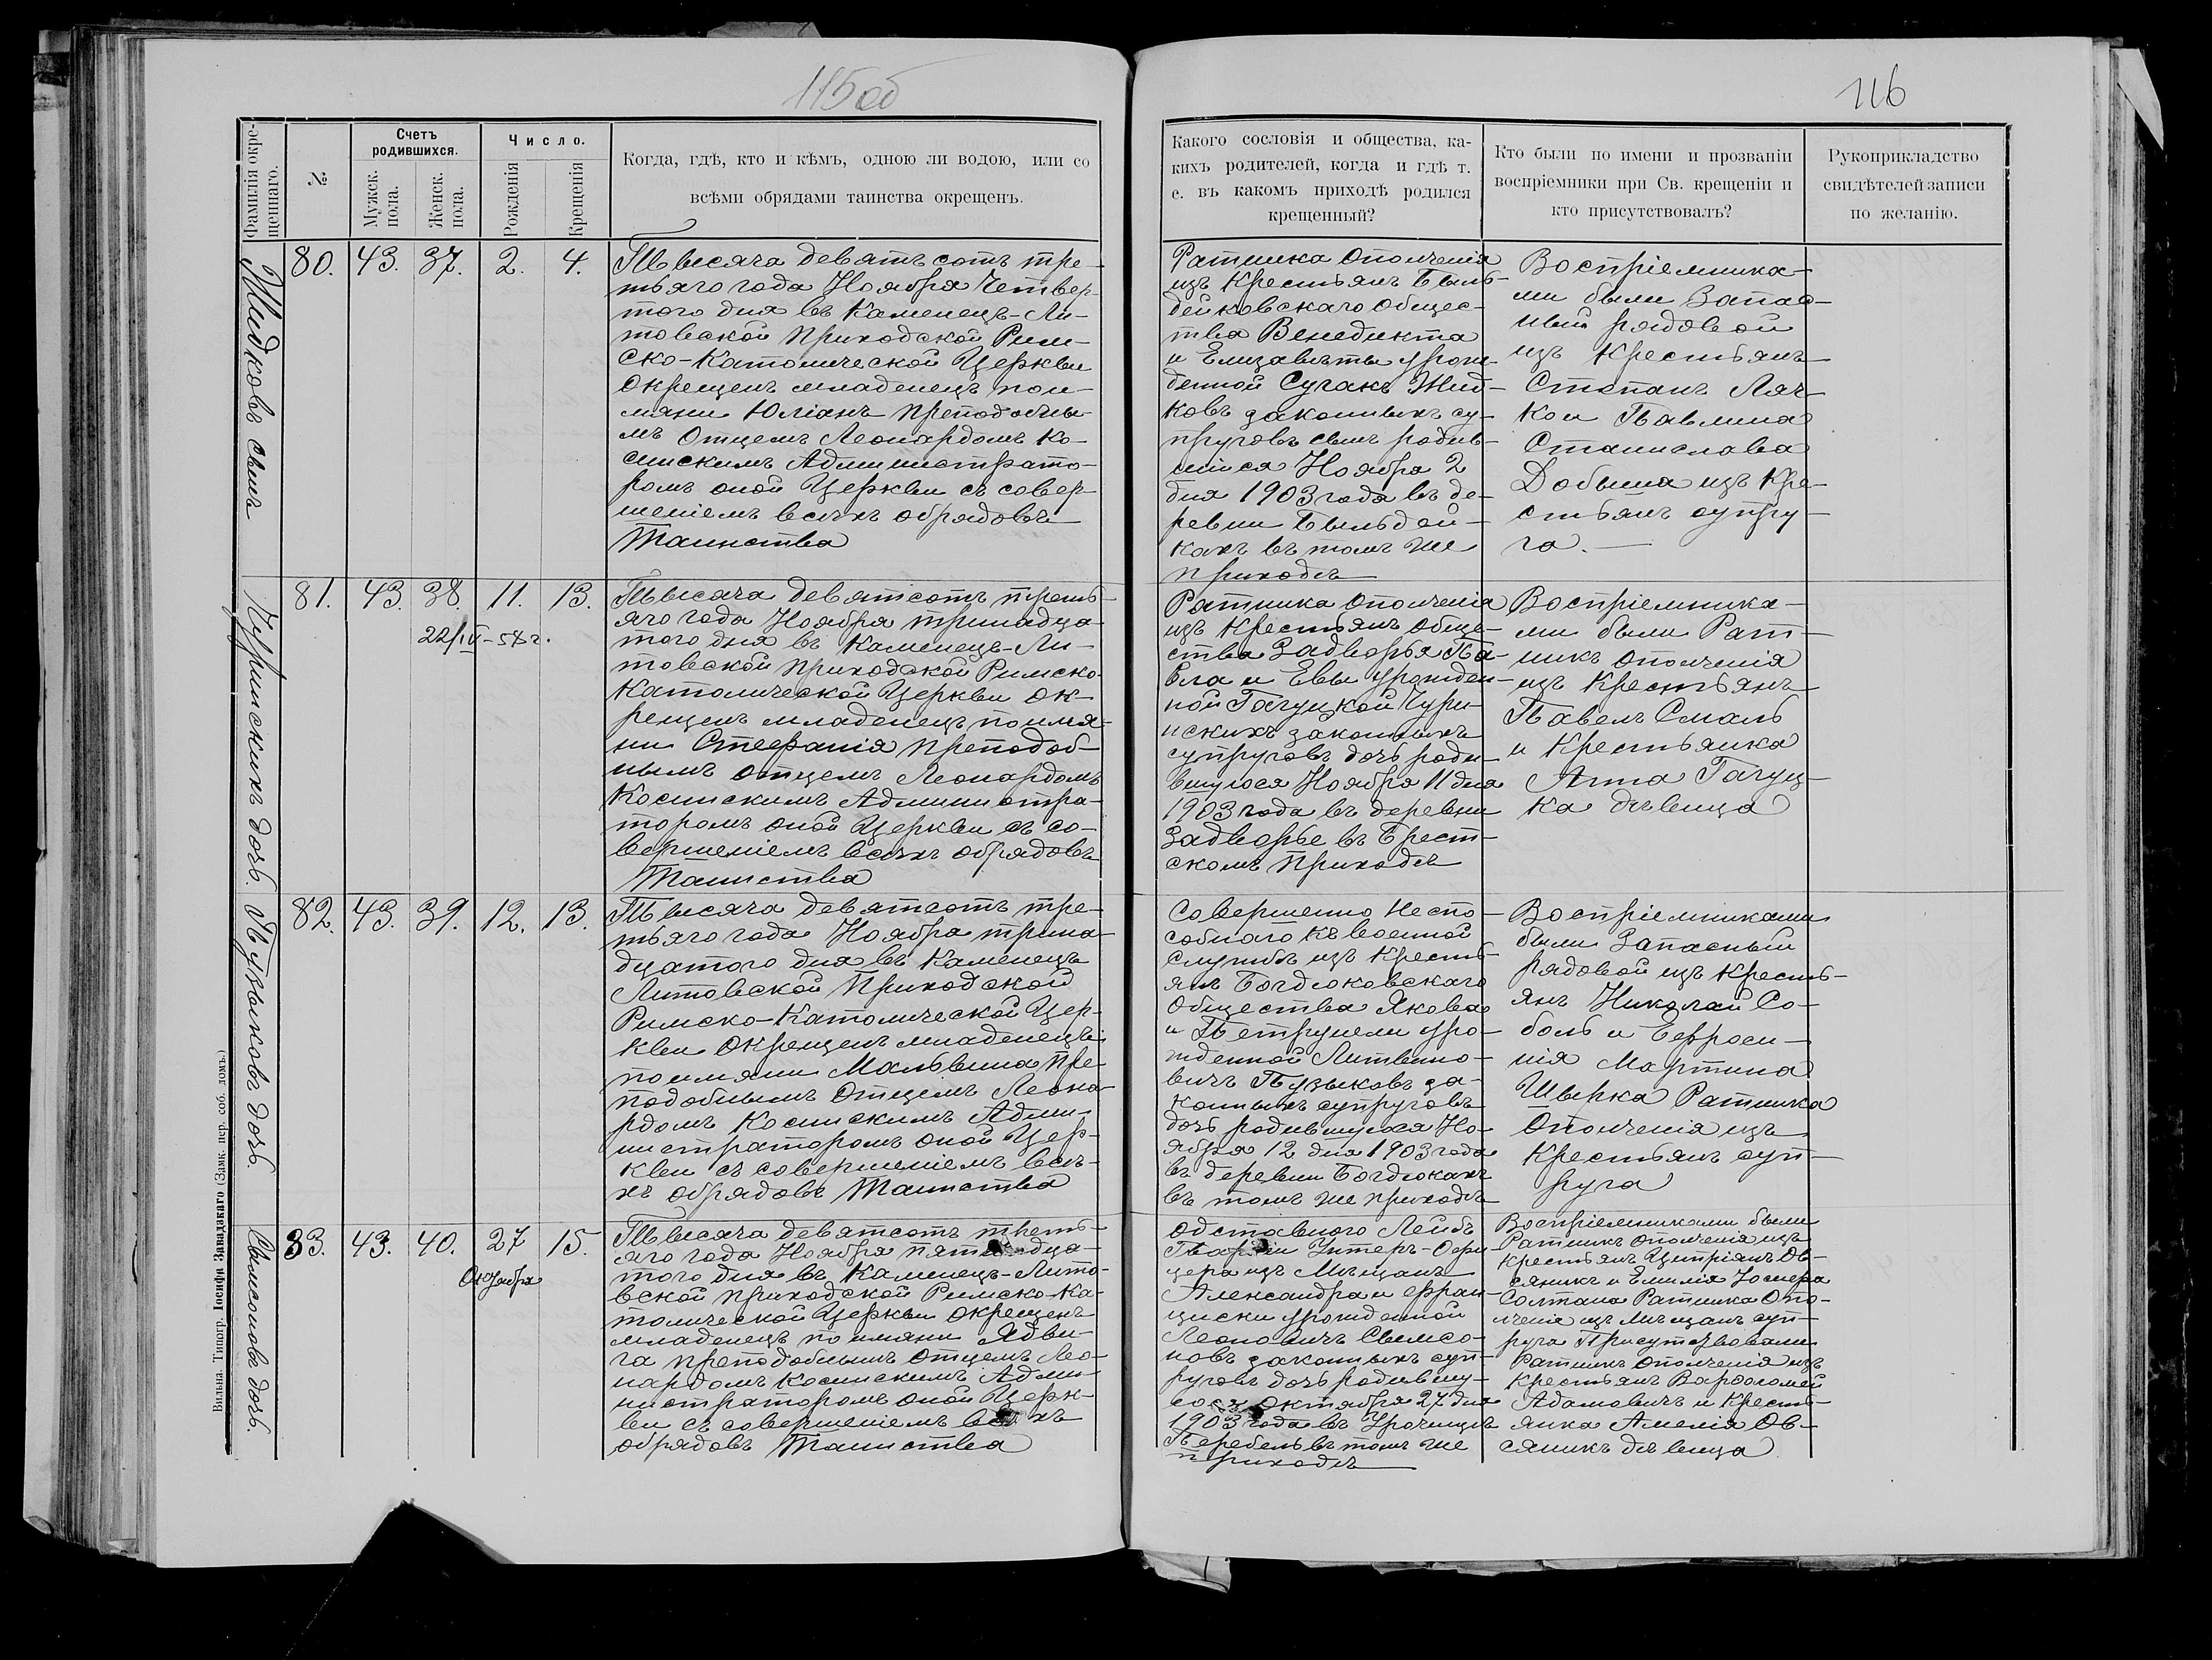 115 об
116
Фамилія окре-
щеннаго.
№
Счетъ
родившихся.
Мужск.
пола.
Женск.
пола.
Число.
Рожденія
Крещенія
Когда, гдѣ, кто и кѣмъ, одною ли водою, или со
всѣми обрядами таинства окрещенъ.
Какого сословія и общества, ка-
кихъ родителей, когда и гдѣ т.
е. въ какомъ приходѣ родился
крещенный?
Кто были по имени и прозванію
воспріемники при Св. крещеніи и
кто присутствовалъ?
Рукоприкладство
свидѣтелей записи
по желанію.
Жидковъ сынъ
80. 43. 37. 2. 4.
Тысяча девятьсотъ тре-
тьяго года Ноября Четвер-
того дня въ Каменецъ-Ли-
товской приходской Рим-
ско-Католической Церкви
окрещенъ младенецъ пои-
мяни Юліанъ преподобны-
мъ Отцемъ Леонардомъ Ко-
синскимъ Администрато-
ромъ оной Церкви съ совер-
шеніемъ всѣхъ обрядовъ
Таинства
Ратника Ополченія
изъ Крестьянъ Быль-
дейковскаго Общес-
тва Венедикта
и Елизаветы урож-
денной Сучакъ Жид-
ковъ законныхъ су-
пруговъ сынъ родив-
шійся Ноября 2
дня 1903 года въ де-
ревни Быльдей-
кахъ въ томъ же
приходѣ
Воспріемника-
ми были Запас-
ный рядовой
изъ Крестьянъ
Степанъ Ляч-
ко и Павлина
Станислава
Добыша изъ Кре-
стьянъ супру-
га.
Чуринскихъ дочь.
81. 43. 38. 11. 13.
22/IV-54 г.
Тысяча девятсотъ треть-
яго года Ноября тринадца-
того дня въ Каменецъ-Ли-
товской приходской Римско-
Католической Церкви ок-
рещенъ младенецъ поимя-
ни Стефанія преподоб-
нымъ отцемъ Леонардомъ
Косинскимъ Администра-
торомъ оной Церкви съ со-
вершеніемъ всѣхъ обрядовъ
Таинства
Ратника ополченія
изъ Крестьянъ обще-
ства Задворья Па-
вла и Евы урожден-
ной Гачуцкой Чури-
нскихъ законныхъ
супруговъ дочь роди-
вшуюся Ноября 11 дня
1903 года въ деревни
Задворье въ Брест-
скомъ приходѣ
Воспріемника-
ми были Рат-
никъ ополченія
изъ Крестьянъ
Павелъ Смаль
и Крестьянка
Анна Гачуц-
ка дѣвица
Пузыковъ дочь.
82. 43. 39. 12. 13.
Тысяча девятсотъ тре-
тьяго года Ноября трина-
дцатого дня въ Каменецъ
Литовской Приходской
Римско-Католической Цер-
кви окрещенъ младенецъ
поимяни Мальвина пре-
подобнымъ Отцемъ Леона-
рдомъ Косинскимъ Адми-
нистраторомъ оной Цер-
кви съ совершеніемъ всѣ-
хъ обрядовъ Таинства
Совершенно неспо-
собнаго къ военной
службѣ изъ Кресть-
янъ Богдюковскаго
Общества Якова
и Петрунели уро-
жденной Литвино-
вичъ Пузыковъ за-
конныхъ супруговъ
дочь родившуюся Но-
ября 12 дня 1903 года
въ деревни Богдюкахъ
въ томъ же приходѣ
Воспріемниками
были Запасный
рядовой изъ Кресть-
янъ Николай Со-
боль и Ефроси-
нія Мартина
Шырка Ратника
Ополченія изъ
Крестьянъ суп-
руга
Самсоновъ дочь.
83. 43. 40. 27 15.
Октября
Тысяча девятсотъ треть-
яго года Ноября пятнадца-
того дня въ Каменецъ-Лито-
вской приходской Римско-Ка-
толической Церкви окрещенъ
младенецъ поимяни Ядви-
га преподобнымъ отцемъ Лео-
нардомъ Косинскимъ Адми-
нистраторомъ оной Церк-
ви съ совершеніемъ всѣхъ
обрядовъ Таинства
Одставного Лейбъ
Гвардіи Унтеръ-Офи-
цера изъ Мѣщанъ
Александра и Фран-
циски урожденной
Леоновичъ Самсо-
новъ законныхъ суп-
руговъ дочь родившу-
юся Октября 27 дня
1903 года въ Урочищѣ
Перебель въ томъ же
приходѣ
Воспріемниками были
Ратникъ ополченія изъ
Крестьянъ Ципріянъ Ов-
сяникъ и Емилія Іосифа
Солтана Ратника Опо-
лченія изъ Мѣщанъ суп-
руга Присутствовали
Ратникъ ополченія изъ
Крестьянъ Варфоломей
Адамовичъ и Кресть-
янка Амелія Ов-
сяникъ дѣвица
Вильна. Типогр. Іосифа Завадзкаго (Замк. пер. соб. домъ.)